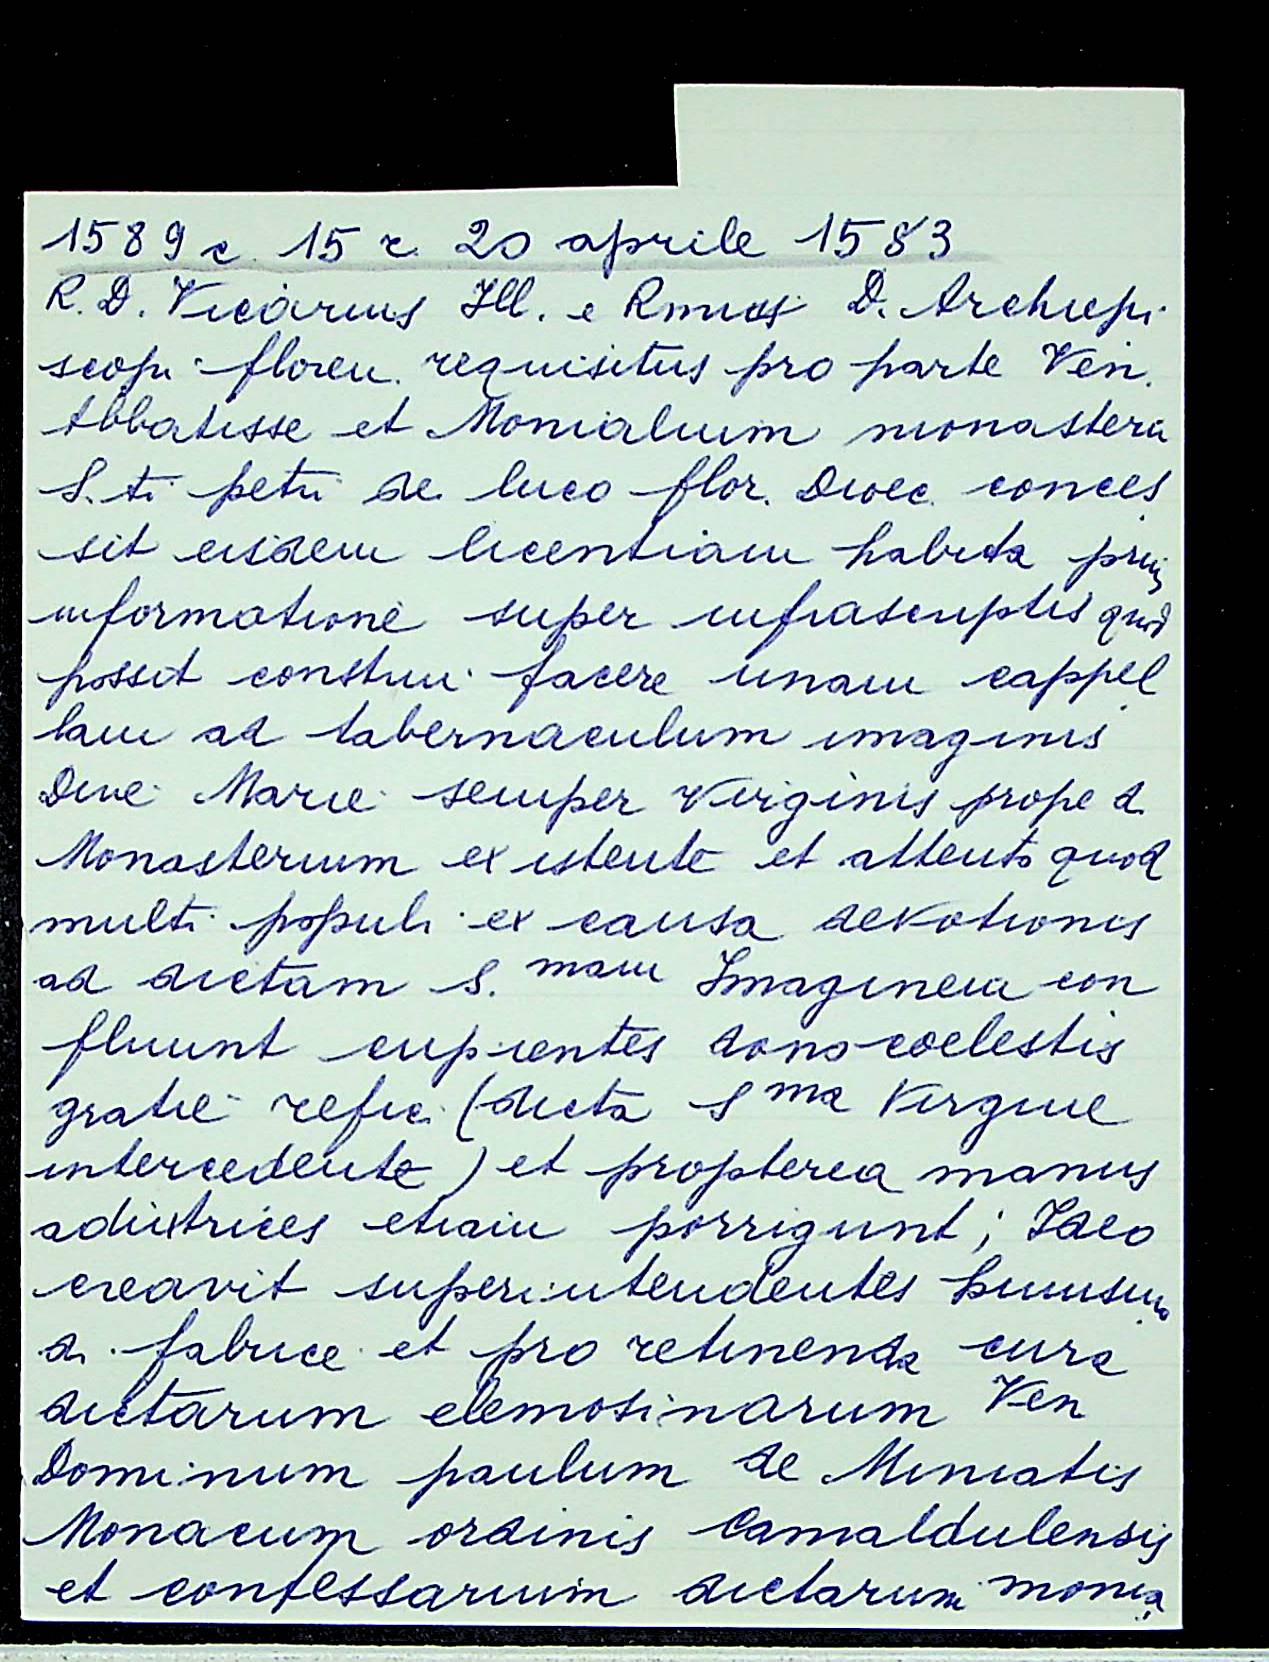 1589 c. 15 r. 20 aprile 1583
R. D. Vicarius Ill. e Rmus D. Archiepi
scopi floren. requisitus pro parte Ven.
Abbatisse et Monialium monasterii
S.ti petri de luco flor. Dioec. conces
sit eisdem licentiam habita prius
informatione super infrascriptis quod
possit construi facere unam cappel
lam ad tabernaculum imaginis
Dive Marie semper Virginis prope d.
Monasterium existente et attento quod
multi populi ex causa devotionis
ad dictam S.mam Imaginem con
fluunt cupientes dono coelestis
gratie refici (dicta Sma Virgine
intercedente) et propterea manus
adiutrices etiam porrigunt; Ideo
creavit superintendentes huiusmo
di fabrice et pro retinenda cura
dictarum elemosinarum Ven
Dominum paulum de Miniatis
Monacum ordinis Camaldulensis
et confessarium dictarum monia